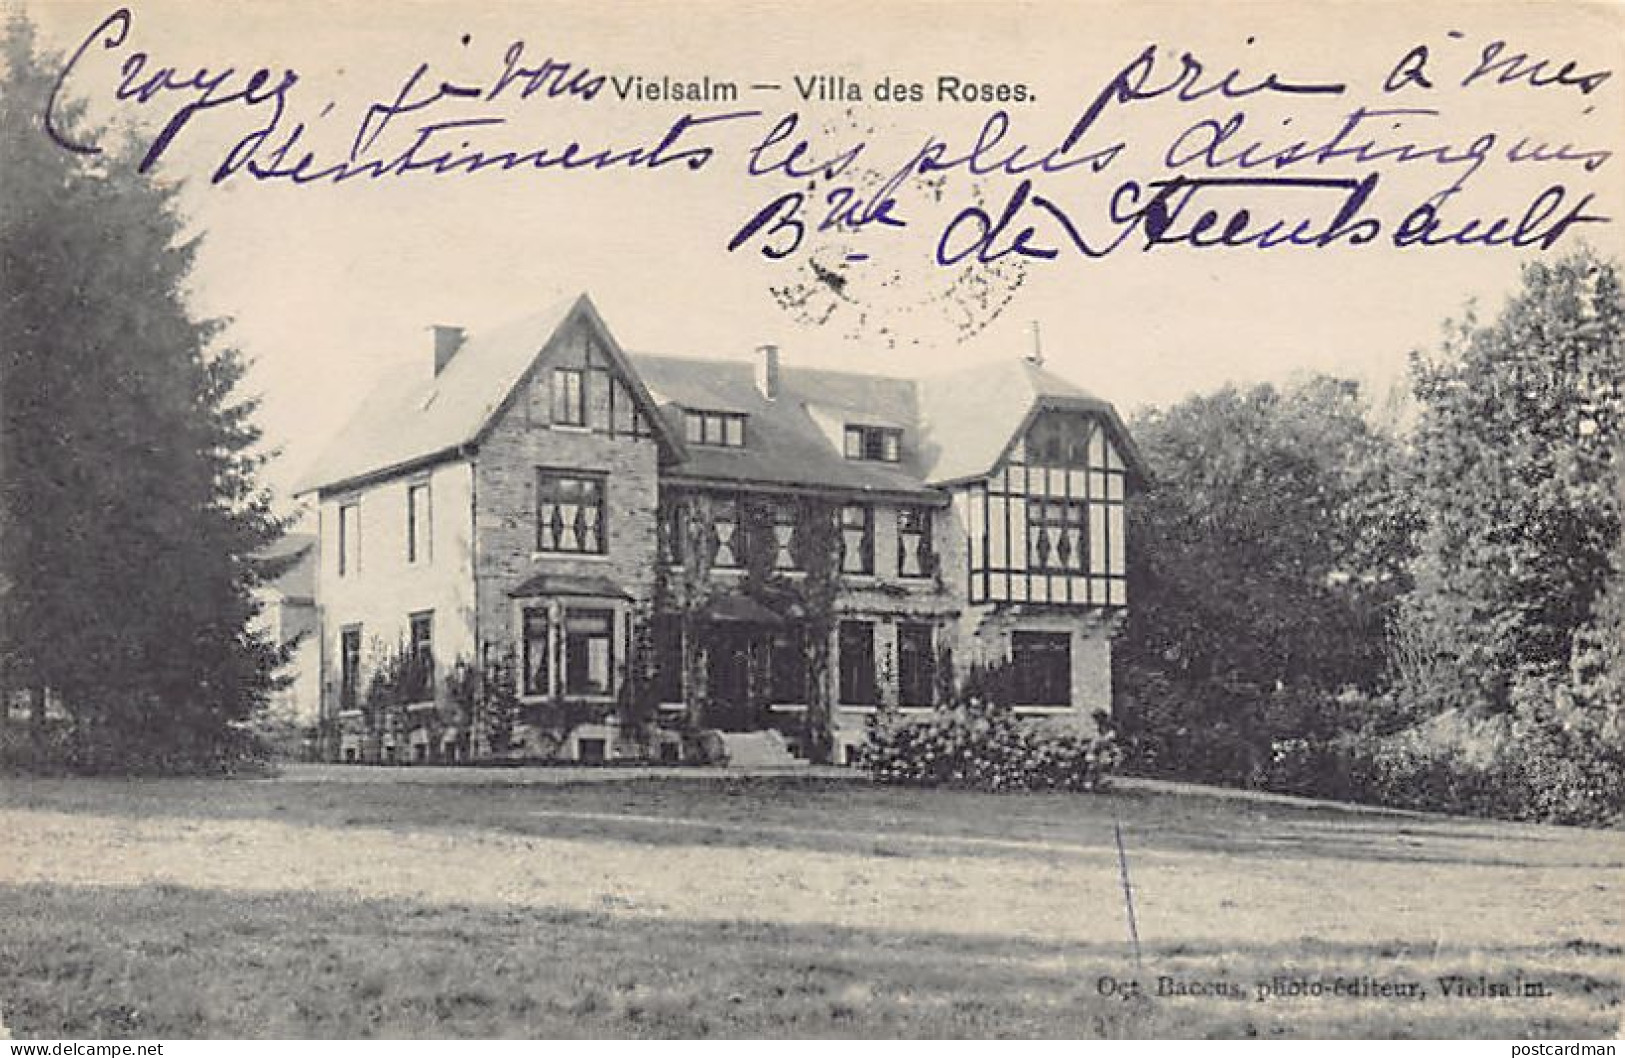 Croyez, je vous prie à mes
Vielsalm — Villa des Roses.
sentiments les plus distingués
Bne de Steenhault
Oct Baccus, photo-éditeur, Vielsalm.
www.delcampe.net
postcardman